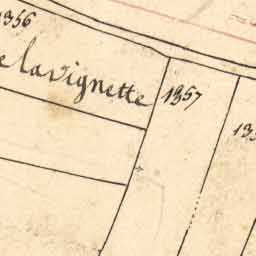 1356
e lavignette
1357